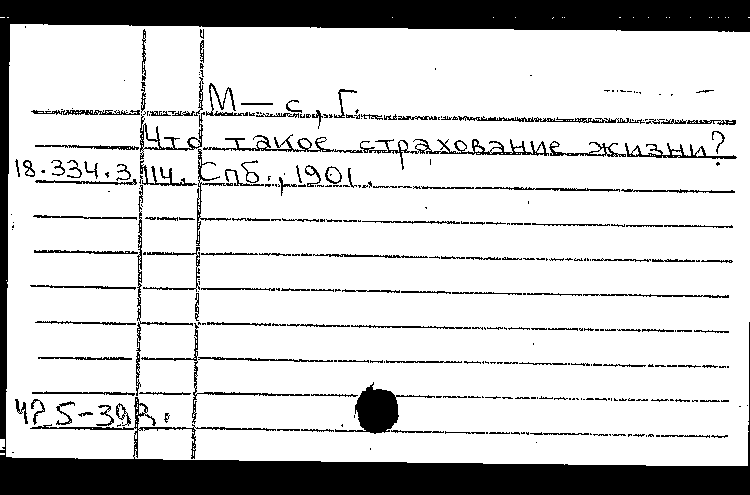 М — с, Г.
Что такое страхование жизни?
18.334.3.114. Спб., 1901.